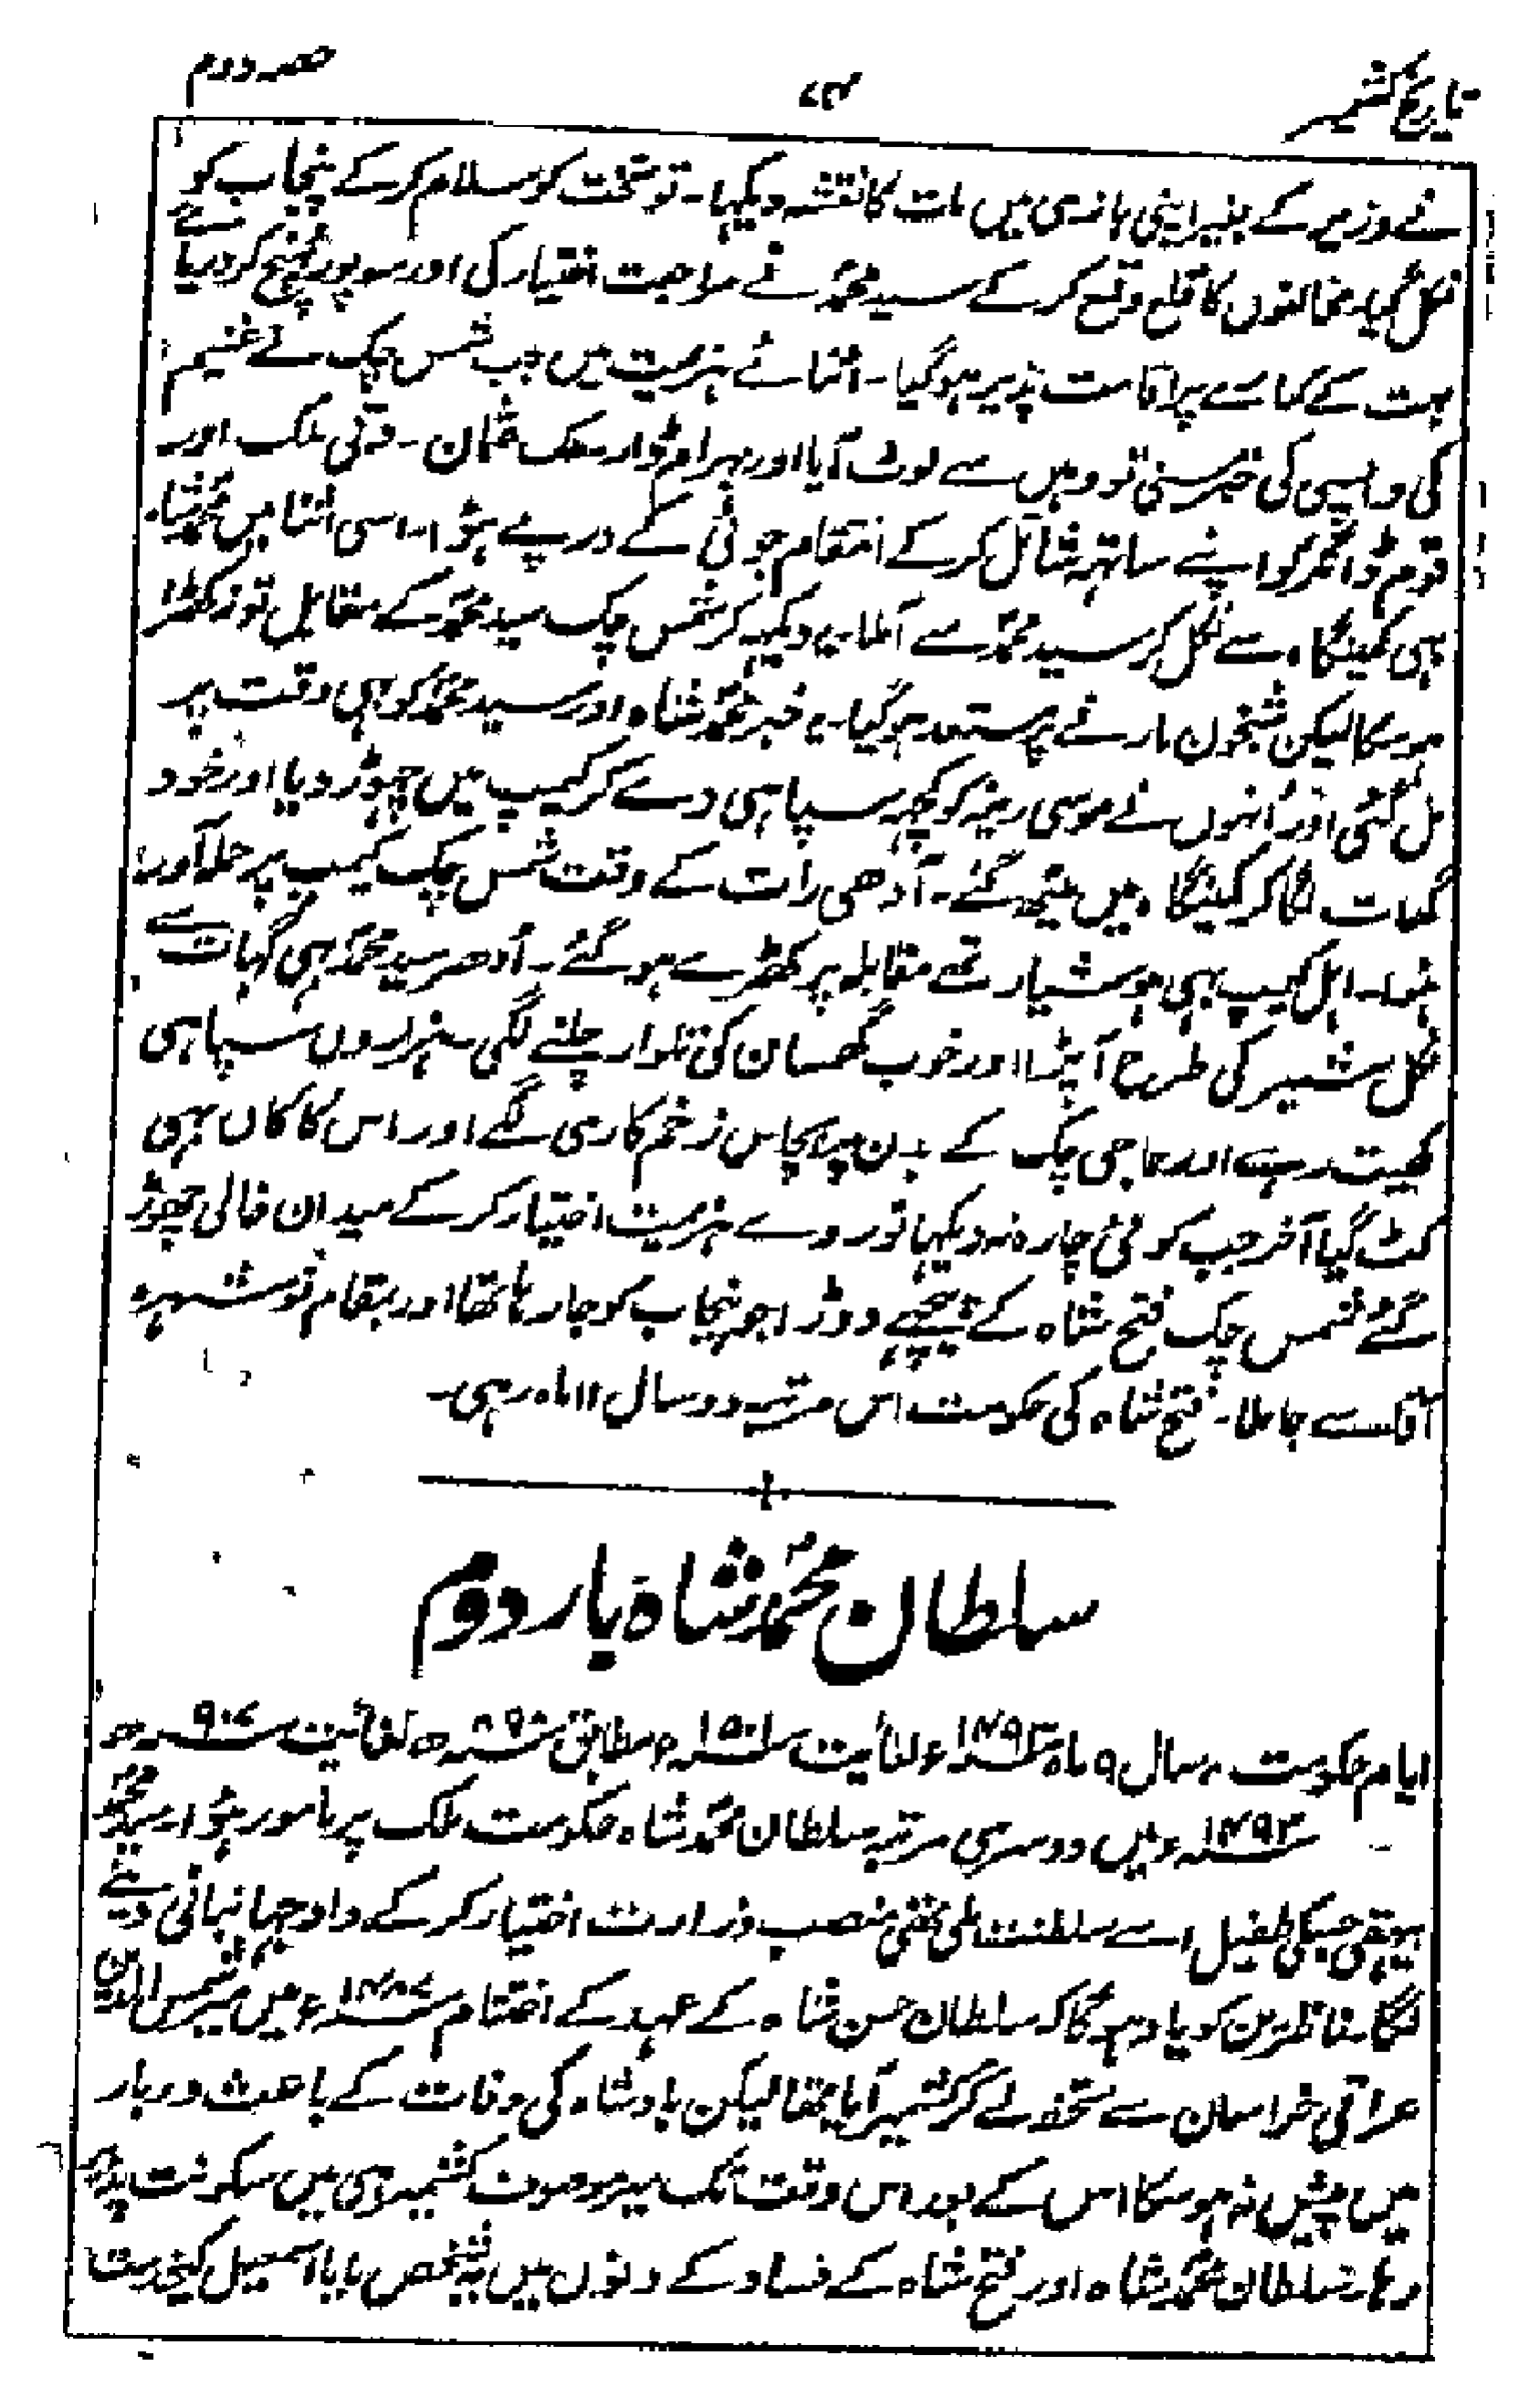 تاریخ کشمیر
حصہ دوم
نے وزیر کے بغیر اپنی بازی میں مات کا نقشہ دیکہا۔ تو تخت کو سلام کر کے پنجاب کو
نکل گیا۔ مخالفوں کا قلع وقمع کر کے سید محمد نے مراجعت اختیار کی اور سوپور پہنچ کر دریائے
بہت کے کنارے پر اقامت پذیر ہو گیا۔ اثنائے ہزیمت میں جب شمس چک نے غنیم
کی واپسی کی خبر سنی تو وہیں سے لوٹ آیا اور بہرام ڈار ملک عثمان۔ دتی ملک اور
قوم ڈانگر کو اپنے ساتہہ شامل کر کے انتقام جوئی کے درپے ہؤا۔ اسی اثنا میں محمد شاہ
بہی کمینگاہ سے نکل کر سید محمد سے آملا یہ دیکہہ کر شمس چک سید محمد کے مقابل تو نہ کھڑا
ہو سکا لیکن شبخون مارنے پر مستعد ہو گیا۔ یہ خبر محمد شاہ اور سید محمد کو بہی وقت پر
مل گئی اور اُنہوں نے موسی رینہ کو کچہہ سپاہی دے کر کیمپ میں چہوڑ دیا اور خود
گہات لگا کر کمینگاہ میں بیٹھ گئے۔ آدھی رات کے وقت شمس چک کیمپ پر حملہ آور
ہؤا۔ اہل کیمپ بہی ہوشیار تھے مقابلہ پر کھڑے ہو گئے۔ اُدھر سید محمد بہی گہات سے
نکل شیر کی طرح آپڑا اور خوب گھمسان کی تلوار چلنے لگی ہزاروں سپاہی
کھیت رہے اور حاجی چک کے بدن پر پچاس زخم کاری لگے اور اس کا کان بہی
کٹ گیا آخر جب کوئی چارہ نہ دیکہا تو روے ہزیمت اختیار کر کے میدان خالی چھوڑ
گئے شمس چک فتح شاہ کے پیچہے دوڑا جو پنجاب کو جا رہا تھا اور بمقام نوشہرہ
آقا سے جا ملا۔ فتح شاہ کی حکومت اس مرتبہ دو سال ۱۱ ماہ رہی۔
سلطان محمد شاہ بار دوم
ایام حکومت ۷ سال ۹ ماہ ۱۴۹۳ء لغائیت ۱۵۰۱ء مطابق ۸۹۸ھ لغائیت ۹۰۷ھ
۱۴۹۳ء میں دوسری مرتبہ سلطان محمد شاہ حکومت ملک پر مامور ہؤا۔ سید محمد
بیہقی جسکی طفیل اسے سلطنت ملی تھی منصب وزارت اختیار کر کے داد جہانبانی دینے
لگا۔ ناظرین کو یاد ہوگا کہ سلطان حسن شاہ کے عہد کے اختتام ۱۴۸۷ء میں میر شمس الدین
عراقی خراسان سے تحفہ لے کر کشمیر آیا تھا لیکن بادشاہ کی وفات کے باعث دربار
میں پیش نہ ہو سکا اس کے بعد اس وقت تک میر موصوف کشمیر ہی میں سکونت پذیر
رہا۔ سلطان محمد شاہ اور فتح شاہ کے فساد کے دنوں میں یہ شخص بابا اسمعیل کیخدمت